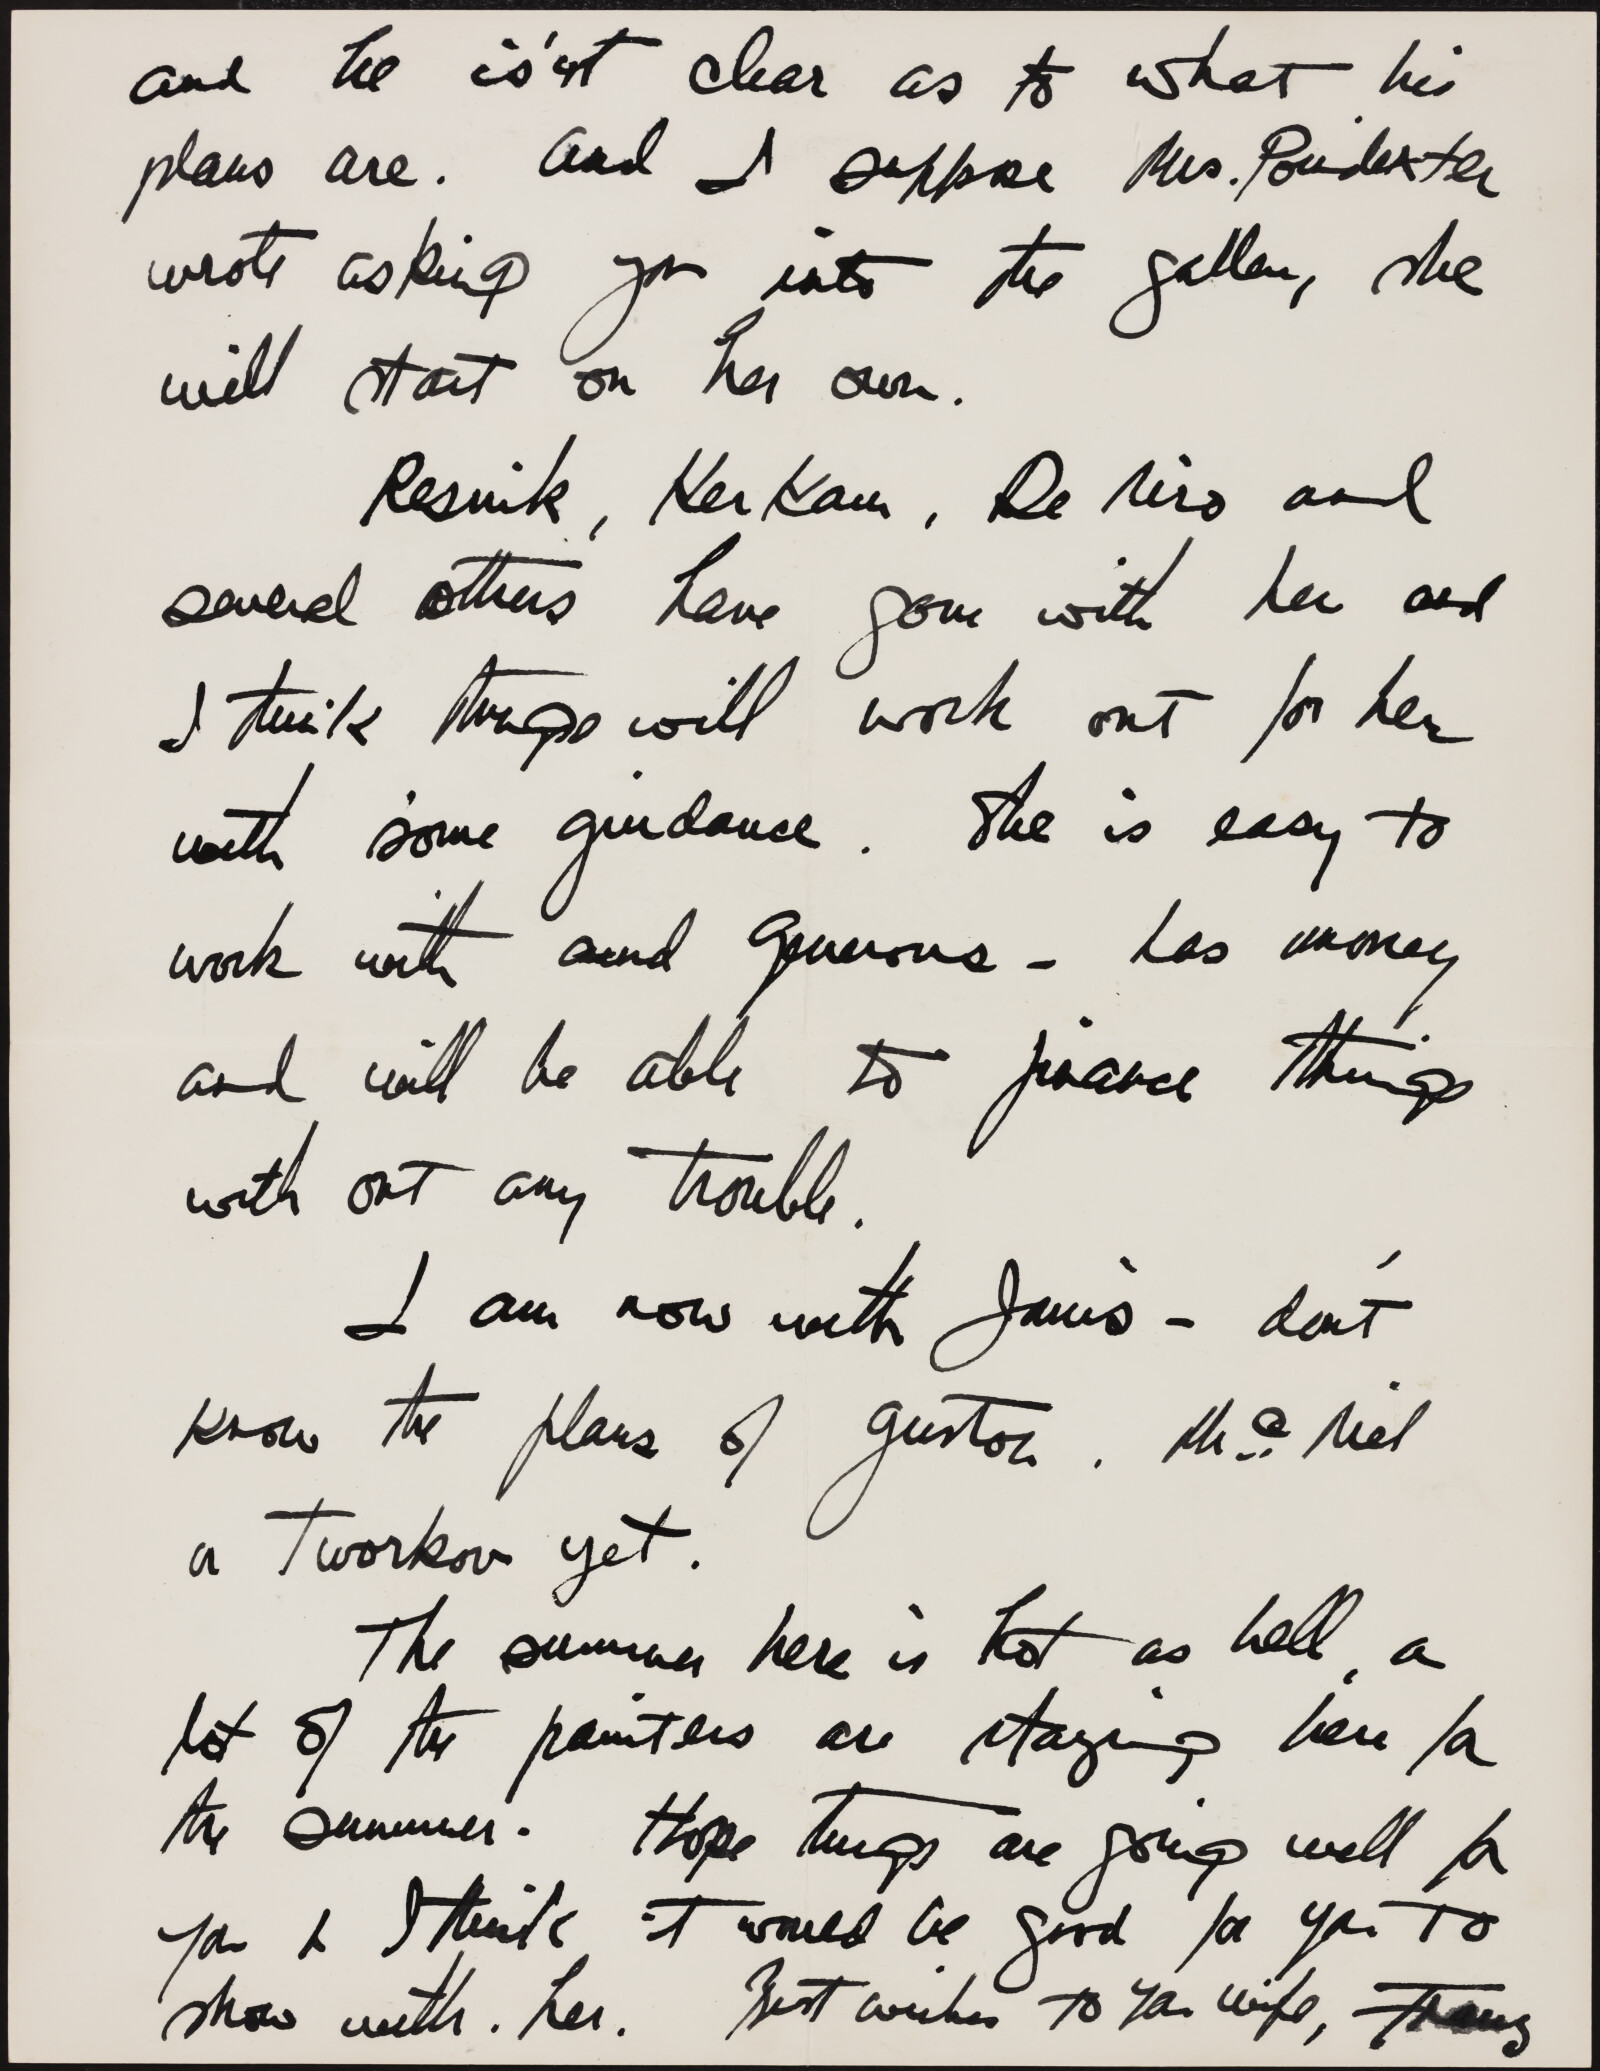 and he is'nt clear as to what his
plans are. And I suppose Mrs. Poindexter
wrote asking you into the gallery, she
will start on her own.
Resnik, Kerkam, De Niro and
several others have gone with her and
I think things will work out for her
with some guidance. She is easy to
work with and generous - has money
and will be able to finance things
with out any trouble.
I am now with Janis - don't
know the plans of Guston. McNeil
or Tworkov yet.
The summer here is hot as hell, a
lot of the painters are staying here for
the summer. Hope things are going well for
you & I think it would be good for you to
show with. her. Best wishes to your wife, Franz